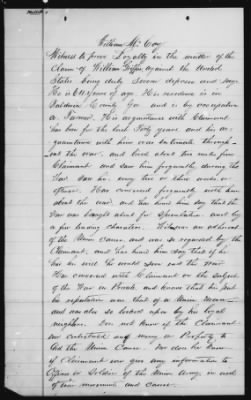 William Mc Coy
Witness to prove Loyalty in the matter of the
claim of William Griffin against the United
States being duly Sworn deposes and says
He is 61 years of age His residence is in
County Ga and is by occupation
a Farmer His acquaintance with Claimant
has been for the last Forty years and his
quaintance with him was intimate through-
out the war, and lived about two miles from
Claimant and saw him frequently during the
War
officer. Has conversed frequently with him
about the war, and has heard him say that the
War was brought about for Speculation and by
a few leading characters. Witness an adherent
of the Union cause and was so regarded by the
Claimant, and has heard him say that if he
had his will he would
Has conversed with Claimant on the subject
of the War in Private and knows that his
reputation was that of a Union man
and was also so looked upon by his loyal
neighbors. Does not know if the Claimant
ever contributed any money or Property to
aid the Union Cause. Nor does he know
if Claimant ever gave any information to
Officers or Soldiers of the Union Army, in aid
of their movements and cause.